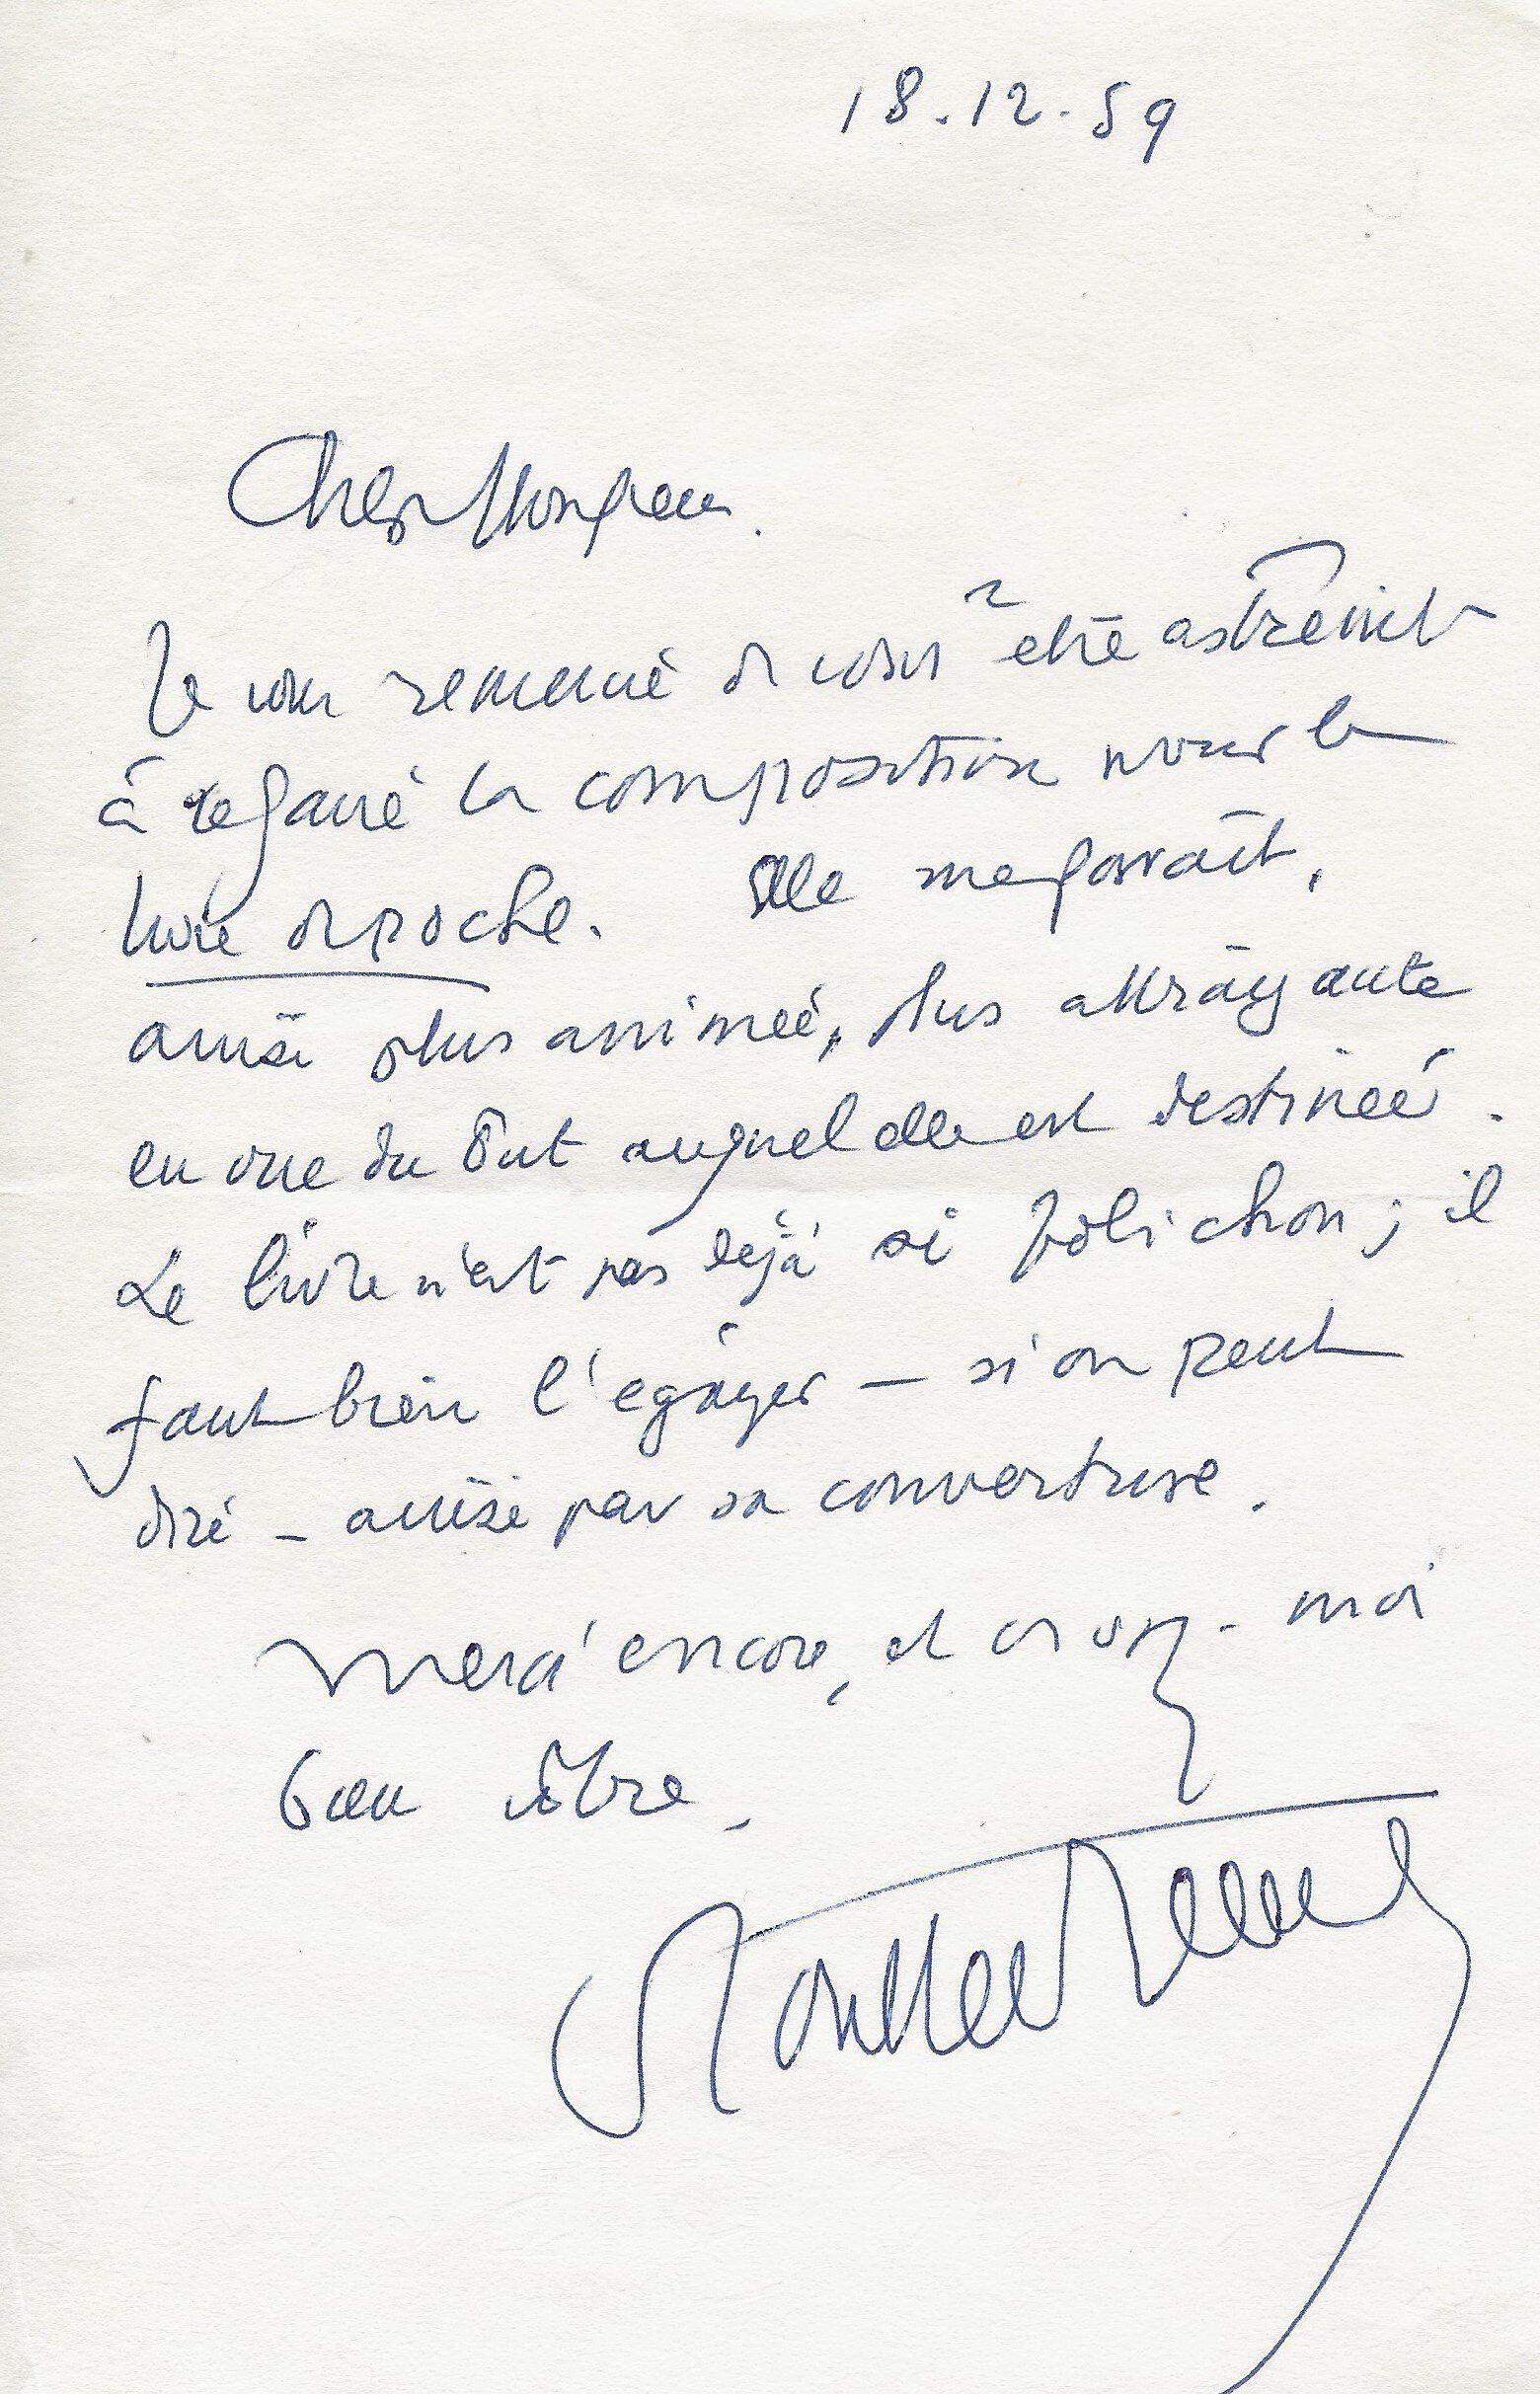 18.12.59
Cher Monsieur.
Je vous remercie de vous être astreint
à refaire la composition pour le
livre de poche. Elle me paraît,
ainsi plus animée, plus attrayante
en vue du but auquel elle est destinée.
Le livre n'est pas déjà si folichon ; il
faut bien l'égayer – si on peut
dire – aussi par sa couverture.
Merci encore, et croyez-moi
bien vôtre.